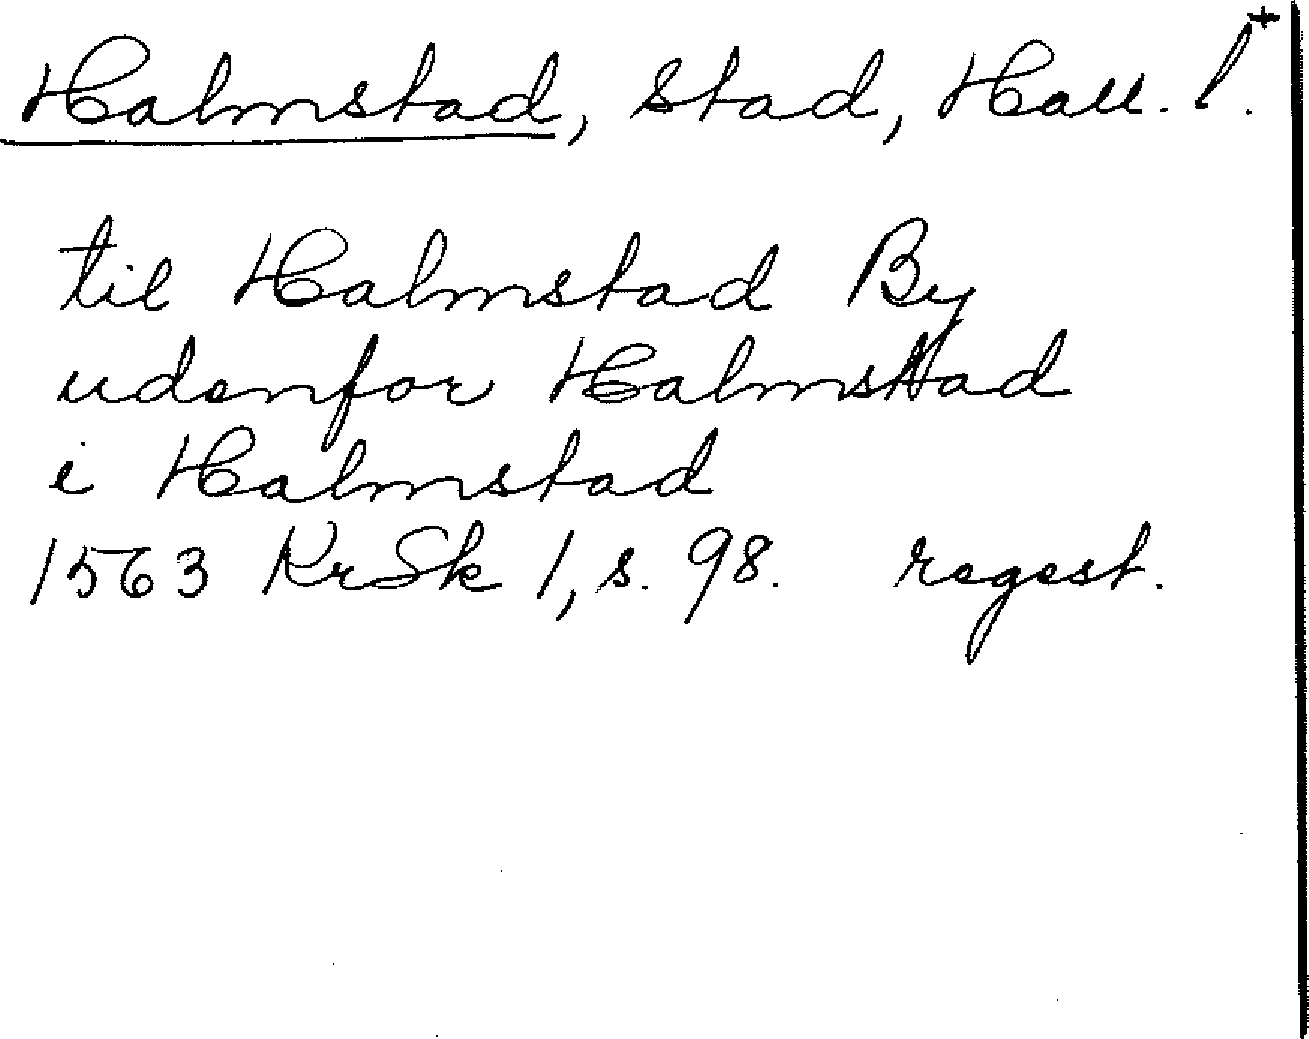 Halmstad, stad, Hall. l. +
til Halmstad By
udenfor Halmstad
i Halmstad
1563 KrSk 1, s. 98. regest.